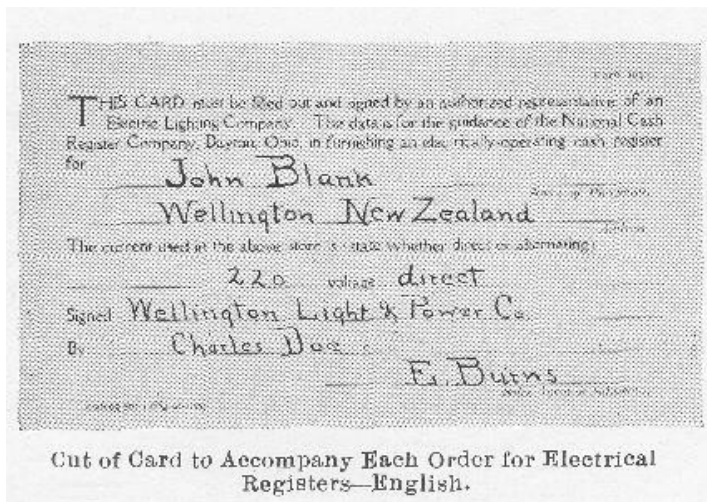 THIS CARD must be filled out and signed by an authorized representative of an
Electric Lighting Company. The data is for the guidance of the National Cash
Register Company, Dayton, Ohio, in furnishing an electrically-operating cash register
for
John Blank
Wellington New Zealand
The current used in the above store is (state whether direct or alternating)
220 voltage direct
Signed Wellington Light & Power Co.
By Charles Doe
E. Burns
Cut of Card to Accompany Each Order for Electrical
Registers—English.